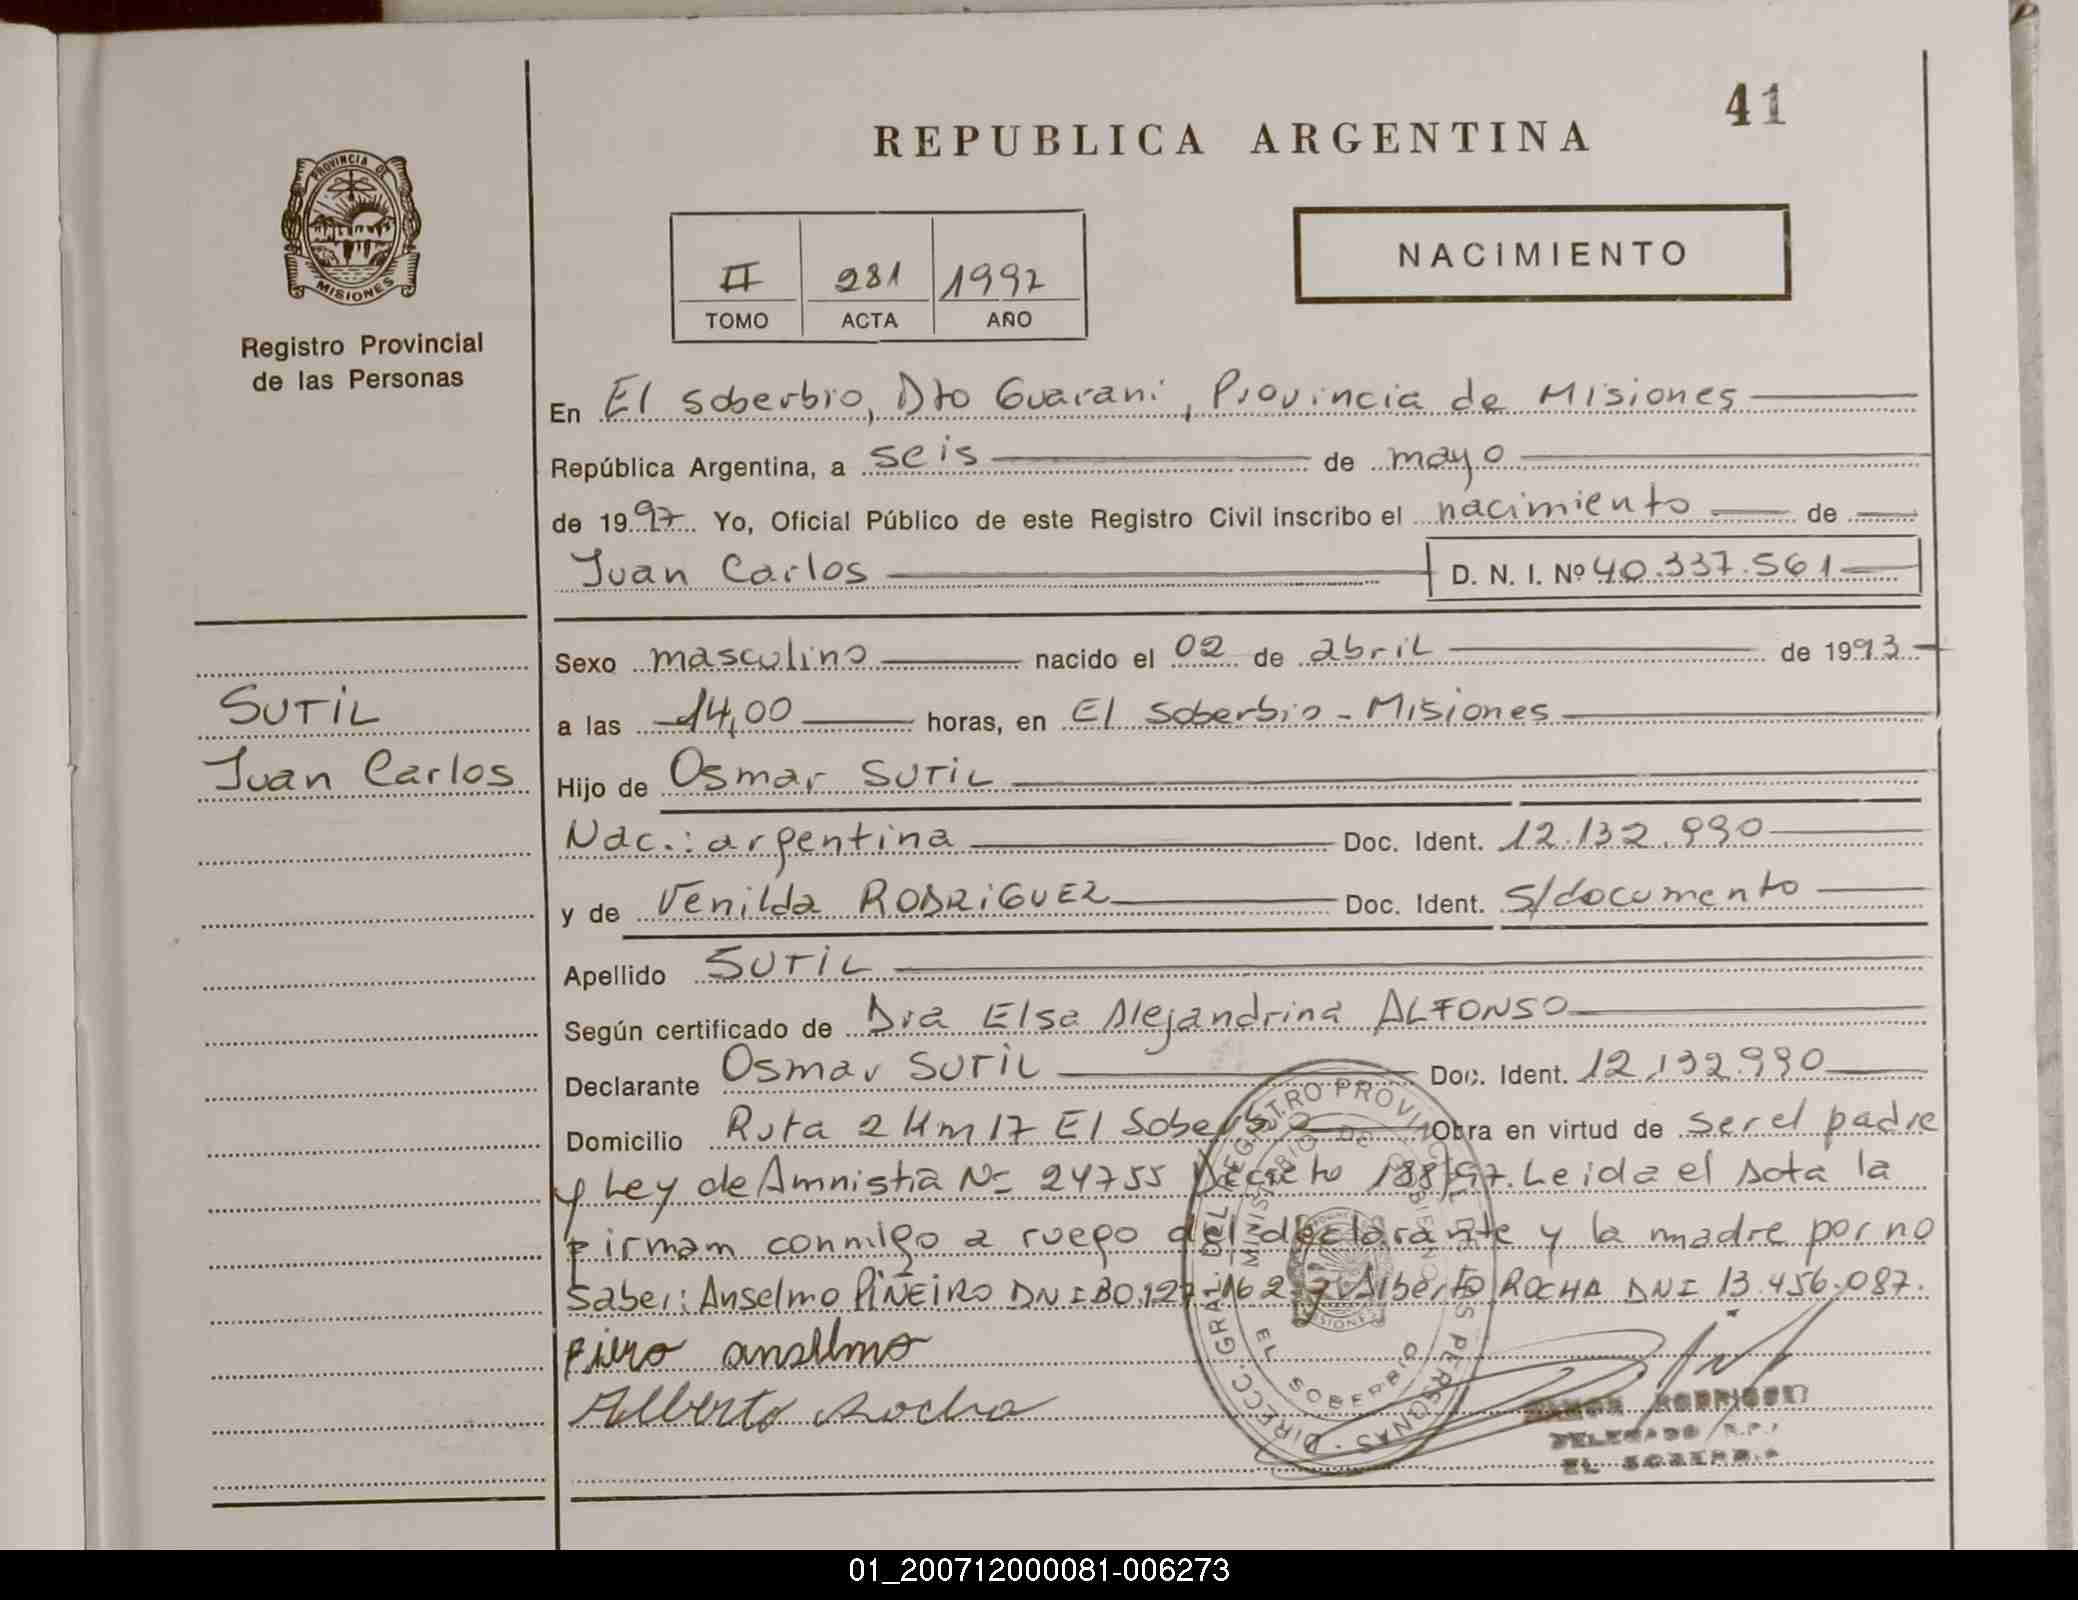 41
REPUBLICA ARGENTINA
PROVINCIA DE
MISIONES
Registro Provincial
de las Personas
NACIMIENTO
II 281 1997
TOMO ACTA AÑO
En El Soberbio, Dto Guarani, Provincia de Misiones
República Argentina, a seis de mayo
de 1997 Yo, Oficial Público de este Registro Civil inscribo el nacimiento de
Juan Carlos D. N. I. Nº 40.337.561
Sexo masculino nacido el 02 de abril de 1993
SUTIL
a las 14,00 horas, en El Soberbio - Misiones
Juan Carlos
Hijo de Osmar SUTIL
Nac.: argentina Doc. Ident. 12.132.990
y de Venilda RODRIGUEZ Doc. Ident. S/documento
Apellido SUTIL
Según certificado de Dra Elsa Alejandrina ALFONSO
Declarante Osmar SUTIL Doc. Ident. 12.132.990
Domicilio Ruta 2 Km 17 El Soberbio Obra en virtud de ser el padre
y Ley de Amnistia Nº 24755 Decreto 188/97. Leida el Acta la
firmam conmigo a ruego del declarante y la madre por no
Saber: Anselmo PIÑEIRO DNI 30.127.162 y Alberto ROCHA DNI 13.456.087.
anselmo
Alberto Rocha
DIRECC. GRAL. DEL REGISTRO PROVINCIAL DE LAS PERSONAS
MINISTERIO DE GOBIERNO
EL SOBERBIO
MISIONES
RODRIGUEZ
DELEGADO R.P.
EL SOBERBIO
01_200712000081-006273